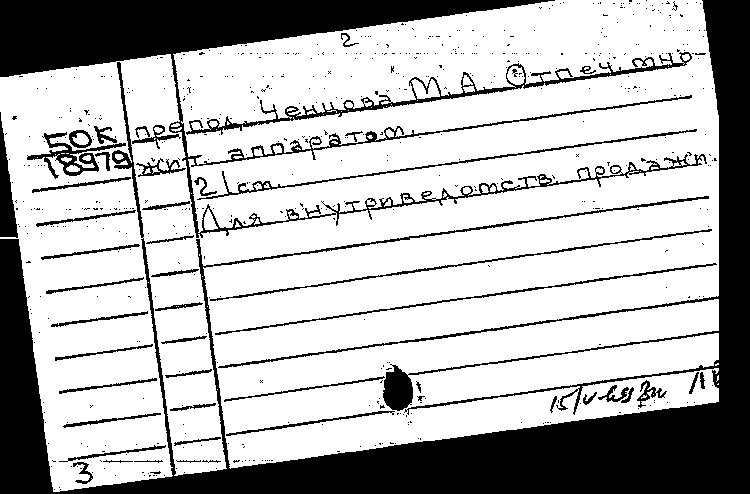 2
50К препод. Ченцова М.А. Отпеч. мно-
18979 жит. аппаратом.
21 cm.
Для внутриведомств. продажи.
15/V-
3